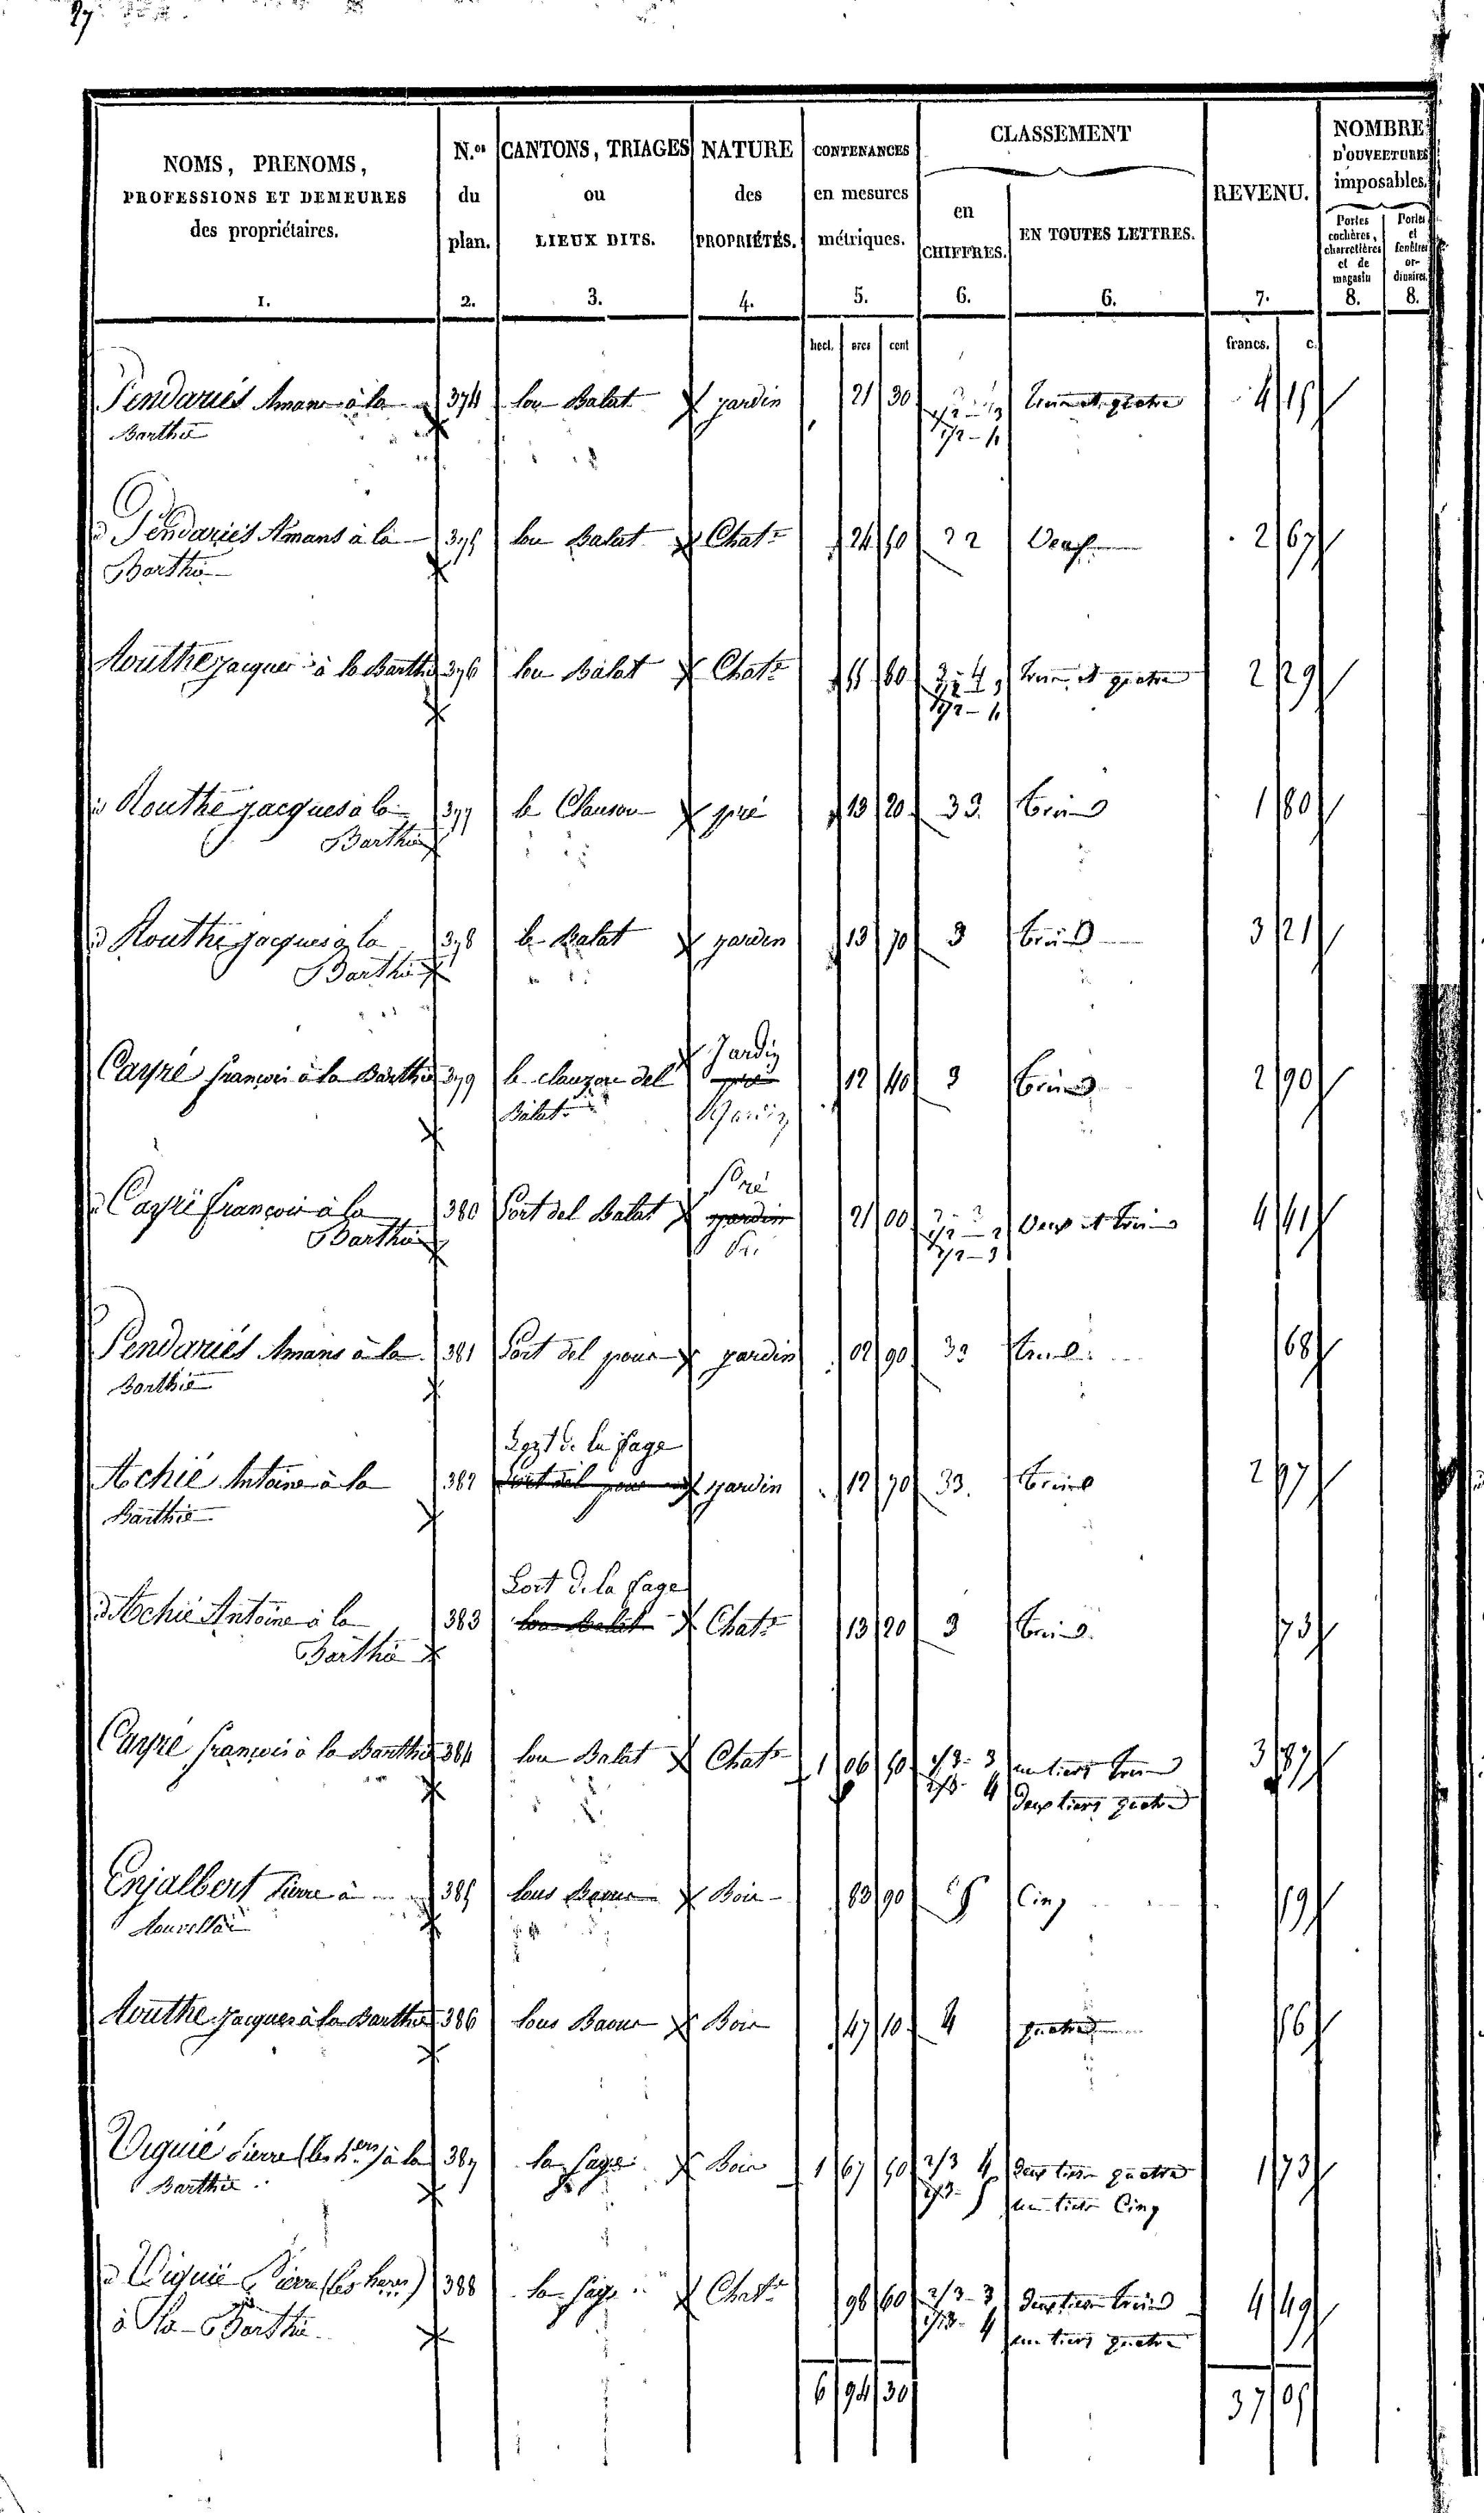 27
NOMS, PRENOMS, PROFESSIONS ET DEMEURES des propriétaires. 1.
N.os du plan. 2.
CANTONS, TRIAGES ou LIEUX DITS. 3.
NATURE des PROPRIÉTÉS. 4.
CONTENANCES en mesures métriques. 5.
CLASSEMENT
en CHIFFRES. 6.
EN TOUTES LETTRES. 6.
REVENU. 7.
NOMBRE D'OUVERTURES imposables.
Portes cochères, charretières et de magasin 8.
Portes et fenêtres ordinaires. 8.
hect. ares cent francs. c.
Pendariés Amans à la 374 lou Balat jardin 21 30 1/2 - 3 trois et quatre 4 15
Barthe 1/2 - 4
d Pendariés Amans à la 375 lou Balat Chat.r 24 50 2 2 Deux 2 67
Barthe
Routhe jacques à la Barthe 376 lou Balat Chat.r 55 80 3 - 4 trois et quatre 2 29
1/2 - 3
1/2 - 4
d Routhe jacques à la 377 le Clauson pré 13 20 33. trois 1 80
Barthe
d Routhe jacques à la 378 le Balat jardin 13 70 3 trois 3 21
Barthe
Cayré françois à la Barthe 379 le clauzon del Jardin pré 12 40 3 trois 2 90
Balat Jardin
d Cayré françois à la 380 Port del Balat Pré jardin 21 00 1/2 - 2 Deux et trois 4 41
Barthe Pré 1/2 - 3
Pendariés Amans à la 381 Port del pour jardin 02 90 33 68
Barthe
Lort de la fage
Achié Antoine à la 382 Port del pour jardin 12 70 33. trois 2 97
Barthe
Lort de la fage
d Achié Antoine à la 383 lou Balat Chat.r 13 20 3 trois 73
Barthe
Cayré françois à la Barthe 384 lou Balat Chat.r 1 06 50 1/3 - 3 un tiers trois 3 87
2/3 - 4 Deux tiers quatre
Enjalbert Pierre à 385 lous Baour Bois 83 90 5 Cinq 59
Routhe jacques à la Barthe 386 lous Baour Bois 47 10 4 quatre 56
Viguié Pierre (les h.ers) à la 387 la fage Bois 1 67 50 2/3 4 deux tiers quatre 1 73
Barthe 1/3 - 5 un tiers Cinq
d Viguié Pierre (les hers) 388 la fage Chat.r 98 60 2/3 - 3 deux tiers trois 4 49
à la Barthe 1/3 - 4 un tiers quatre
6 94 30 37 05